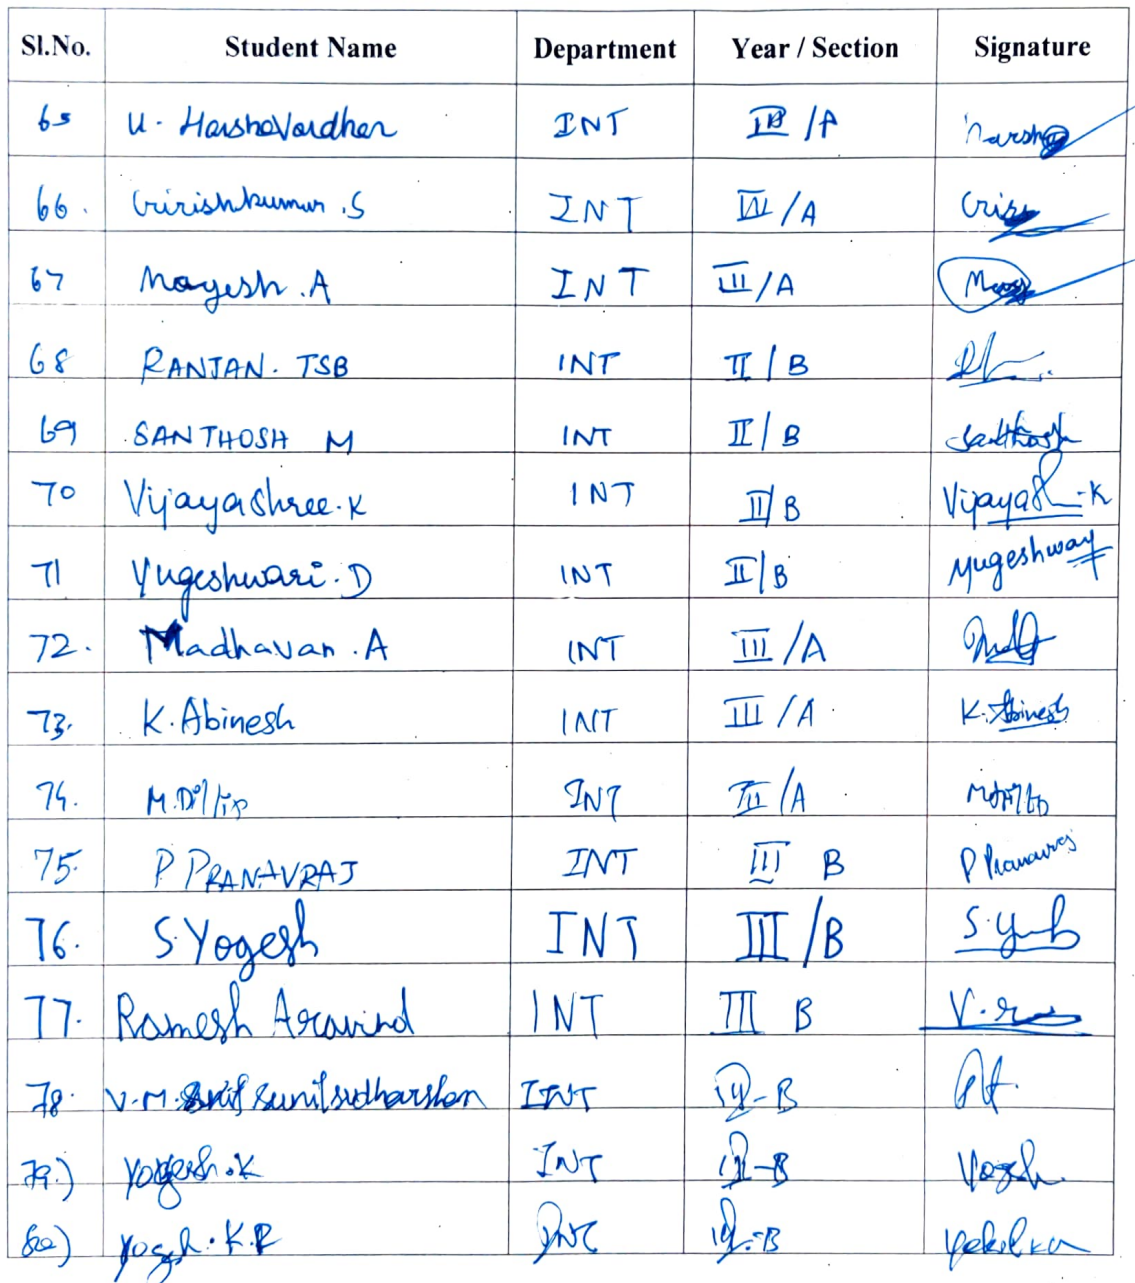 Sl.No. Student Name Department Year / Section Signature
65 U. Harshavardhan INT III /A Harsh
66. Girishkumar .S INT III /A
67 Mayesh .A INT III /A
68 RANJAN. TSB INT II / B
69 SANTHOSH M INT II / B Santhosh
70 Vijayashree.K INT II/B
71 Yugeshwari.D INT II/B Yugeshwari
72. Madhavan .A INT III /A
73. K.Abinesh INT III /A K.Abinesh
74. M.Dillip INT III /A
75. P PRANAVRAJ INT III B P Pranavraj
76. S.Yogesh INT III /B
77. Ramesh Aravind INT III B
78. V.M. Sunilsudharshan INT B
79.) Yogesh.K INT B
80) K.R B